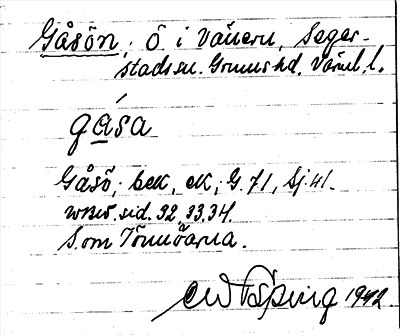 Gåsön, Ö. i Vänern, Seger-
stads sn. Grums hd. Värml. l.
gåsa
Gåsö, bek, eK, G. 71, Sj. 41.
sid. 32, 33, 34.
S.om Tönnöarna.
1942